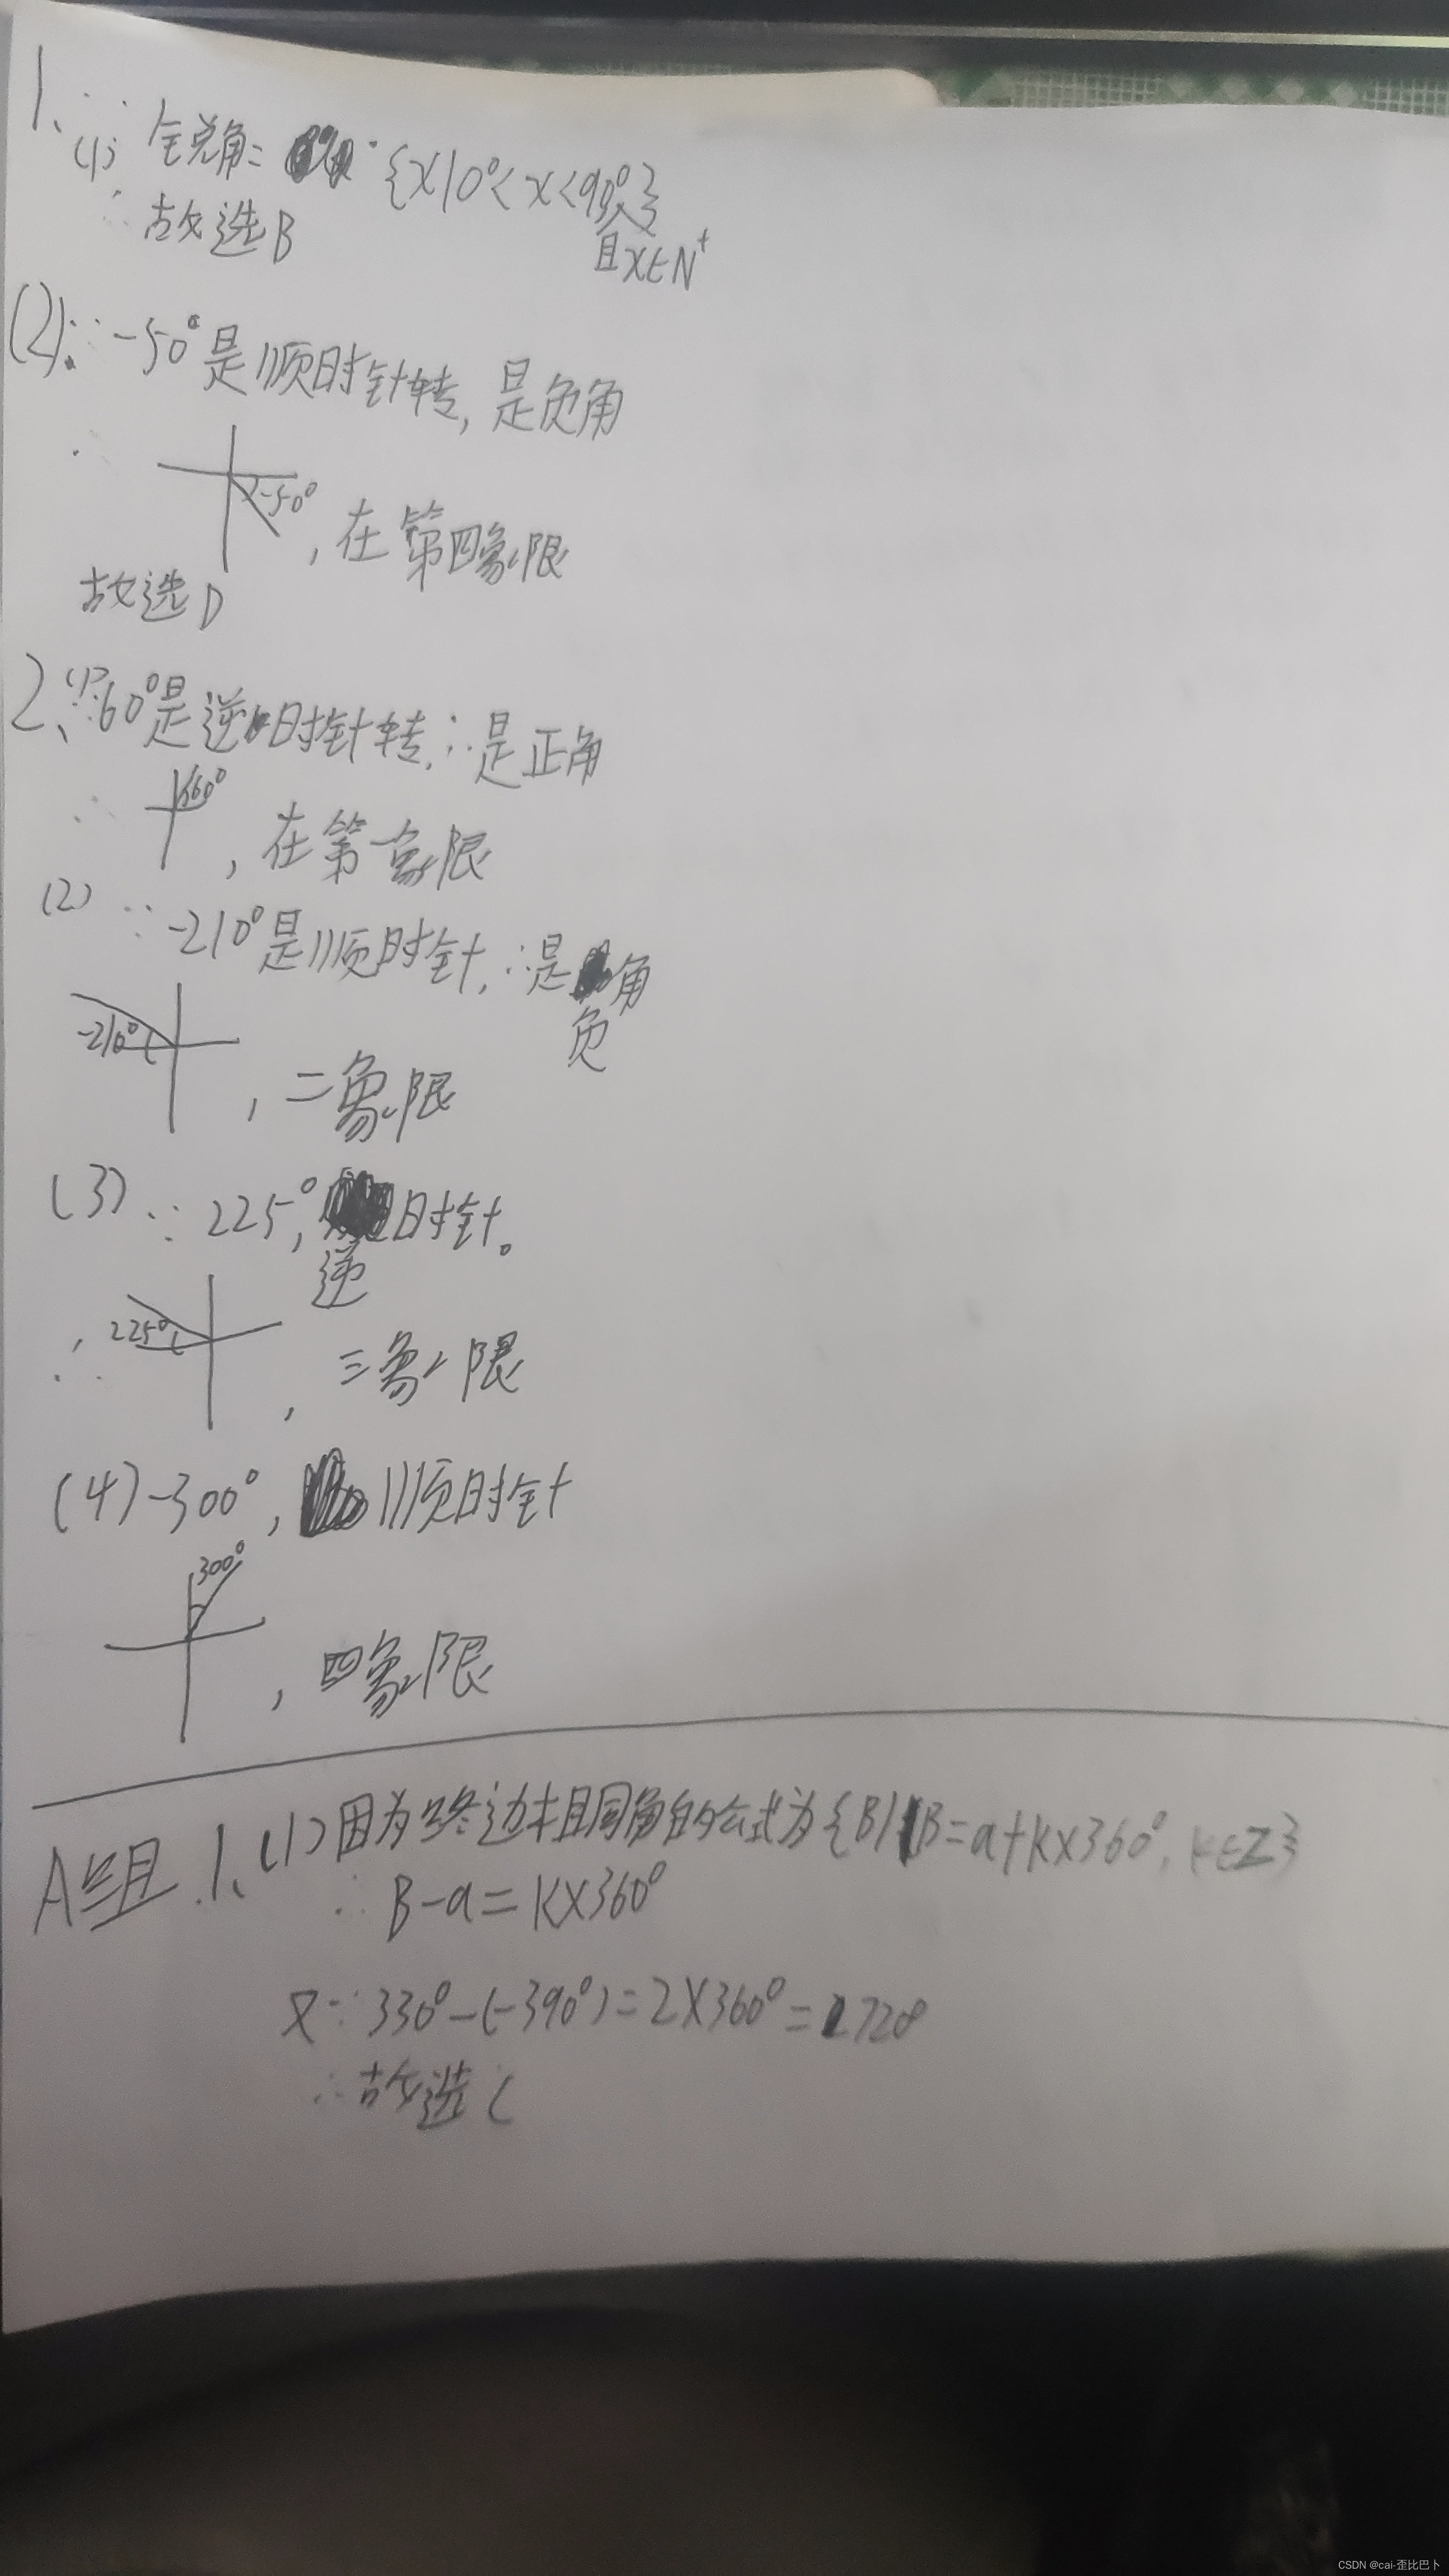 1、(1)∵ 锐角= {x|0°<x<90°}
且x∈N⁺
∴ 故选B
(2)、∵ -50°是顺时针转, 是负角
∴ -50° , 在第四象限
故选D
2、(1)∵60°是逆时针转, ∴是正角
∴ 60° , 在第一象限
(2) ∵ -210°是顺时针, ∴是负角
-210° , 二象限
(3) ∵ 225°, 逆时针。
∴ 225° , 三象限
(4) -300°, 顺时针
300° , 四象限
A组 1、(1)因为终边相同角的公式为{B|B=a+k×360°, k∈Z}
∴ B-a=k×360°
又∵ 330°-(-390°)=2×360°=720°
∴故选C
CSDN @cai·歪比巴卜